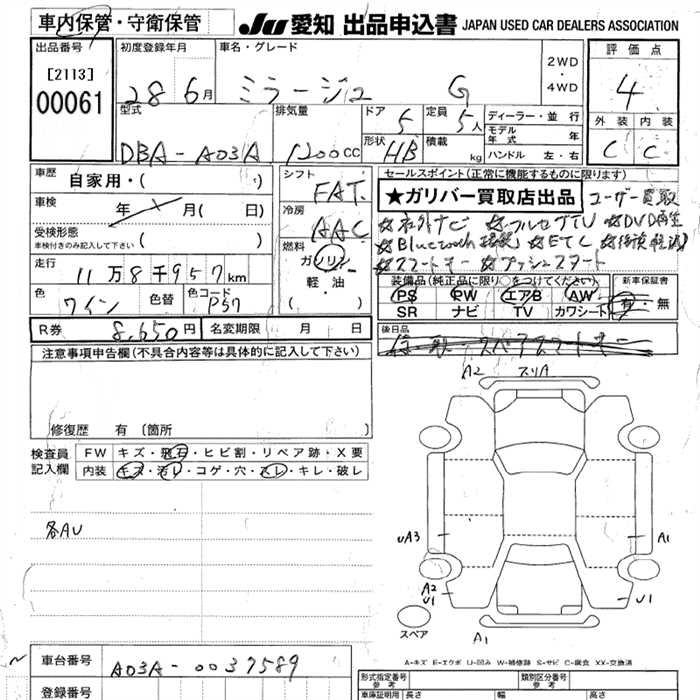 車内保管・守衛保管
JU 愛知 出品申込書 JAPAN USED CAR DEALERS ASSOCIATION
出品番号
[2113]
00061
初度登録年月
車名・グレード
28 6月
ミラージュ G
2WD
・
4WD
評価点
4
外装 内装
C C
型式
DBA-A03A
排気量
1200CC
ドア
5
定員
5人
形状
HB
積載
kg
ディーラー・並行
モデル年式 年
ハンドル 左・右
車歴
自家用・( )
車検
年 月( 日)
受検形態
車検付きのみ記入して下さい ( )
走行
11万8千957km
色
ワイン
色替
色コード
P57
シフト
FAT
冷房
AAC
燃料
ガソリン
軽油
( )
セールスポイント(正常に機能するものに限ります)
★ガリバー買取店出品 ユーザー買取
☆社外ナビ ☆フルセグTV ☆DVD再生
☆Bluetooth接続 ☆ETC
☆スマートキー ☆プッシュスタート
装備品(純正品に限り○をつけてください)
PS PW エアB AW
SR ナビ TV カワシート
新車保証書
有・無
R券 8,650円
名変期限 月 日
後日品
注意事項申告欄(不具合内容等は具体的に記入して下さい)
修復歴 有 〔箇所
検査員
記入欄
FW キズ・飛石・ヒビ割・リペア跡・X要
内装 キズ・汚レ・コゲ・穴・スレ・キレ・破レ
各AU
A2 スリA
UA3
A1
A2
U1
U1
スペア
A1
A-キズ E-エクボ U-凹み W-補修跡 S-サビ C-腐食 XX-交換済
車台番号
A03A-0037589
登録番号
形式指定番号
参考
類別区分番号
参考
車庫証明用
長さ 幅 高さ